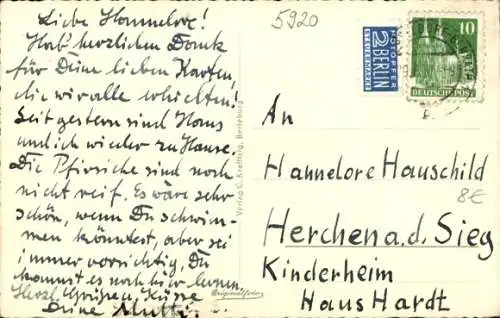 Liebe Hannelore!
Hab' herzlichen Dank
für Deine lieben Karten,
die wir alle erhielten!
Seit gestern sind Hans
und ich wieder zu Hause.
Die Pfirsiche sind noch
nicht reif. Es wäre sehr
schön, wenn Du schwim-
men könntest, aber sei
immer vorsichtig, Du
kannst es noch hier lernen.
Herzl. Grüßen, Küsse
Deine Mutti
Verlag C. Kreffzig, Berleburg
Originalfoto
5920
NOTOPFER
2 BERLIN
STEUERMARKE
10
DEUTSCHE POST
An
Hannelore Hauschild
8€
Herchen a. d. Sieg
Kinderheim
Haus Hardt